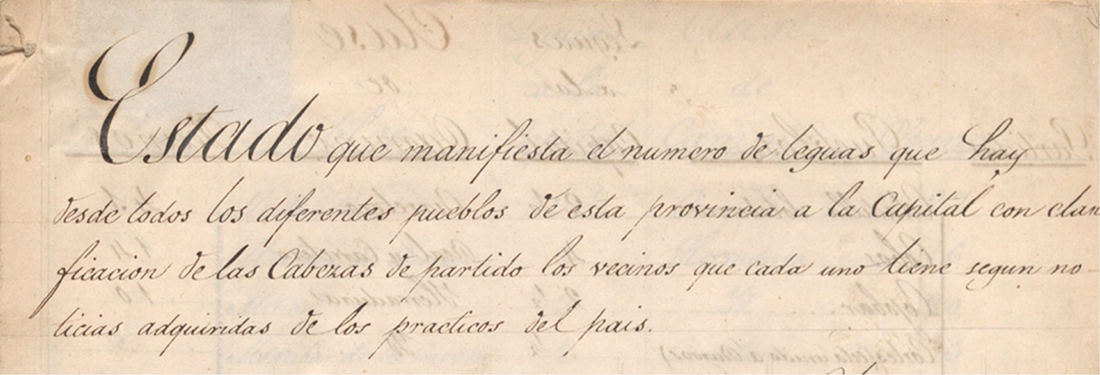 Estado que manifiesta el numero de leguas que hay
desde todos los diferentes pueblos de esta provincia a la Capital con clasi
ficacion de las Cabezas de partido los vecinos que cada uno tiene segun no-
ticias adquiridas de los practicos del pais.